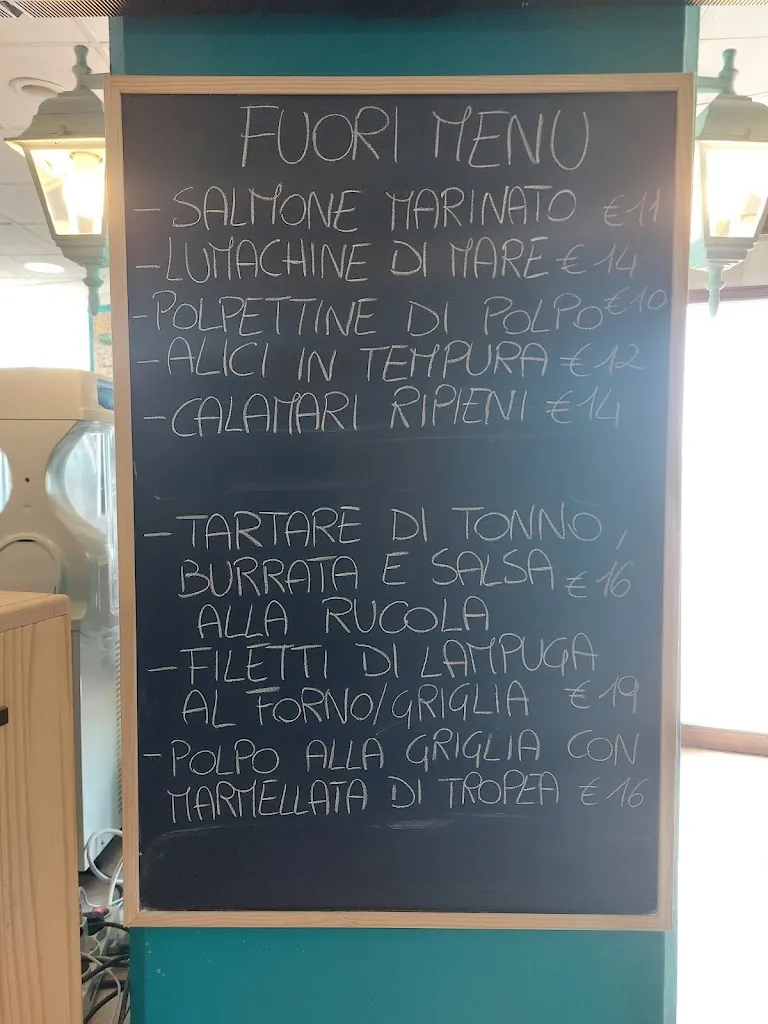 FUORI MENU
- SALMONE MARINATO €11
- LUMACHINE DI MARE € 14
- POLPETTINE DI POLPO €10
- ALICI IN TEMPURA € 12
- CALAMARI RIPIENI € 14
- TARTARE DI TONNO,
BURRATA E SALSA € 16
ALLA RUCOLA
- FILETTI DI LAMPUGA
AL FORNO/GRIGLIA € 19
- POLPO ALLA GRIGLIA CON
MARMELLATA DI TROPEA € 16